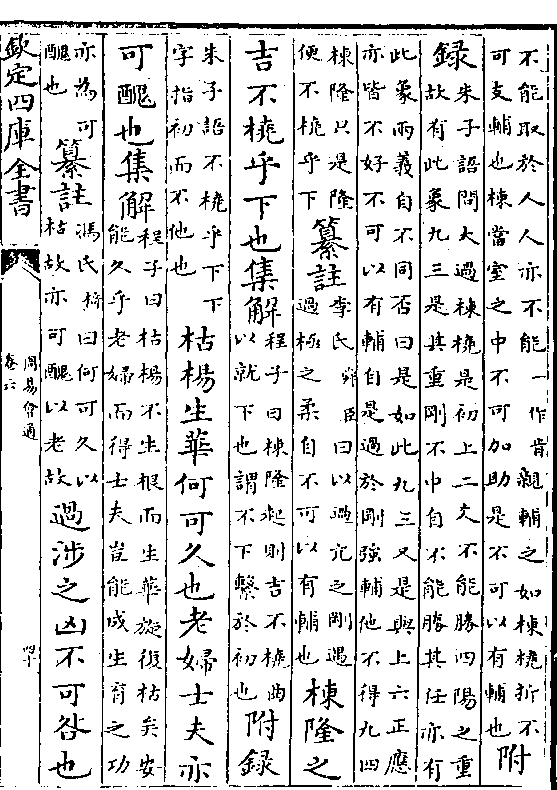 不能取於人人亦不能一作肯親輔之如棟橈折不
可支輔也棟當室之中不可加助是不可以有輔也附
録朱子語問大過棟橈是初上二爻不能勝四陽之重
故有此象九三是其重剛不中自不能勝其任亦有
此象兩義自不同否曰是如此九三又是與上六正應
亦皆不好不可以有輔自是過於剛強輔他不得九四
棟隆只是隆
便不橈乎下纂註李氏舜臣曰以過亢之剛遇
過極之柔自不可以有輔也棟隆之
吉不橈乎下也集解程子曰棟隆起則吉不橈曲
以就下也謂不下繫於初也附録
朱子語不橈乎下下
字指初而不他也枯楊生華何可久也老婦士夫亦
可醜也集解程子曰枯楊不生根而生華旋復枯矣安
能久乎老婦而得士夫豈能成生育之功
亦為可
醜也纂註馮氏椅曰何可久以
枯故亦可醜以老故過涉之凶不可咎也
欽定四庫全書
周易會通
卷六